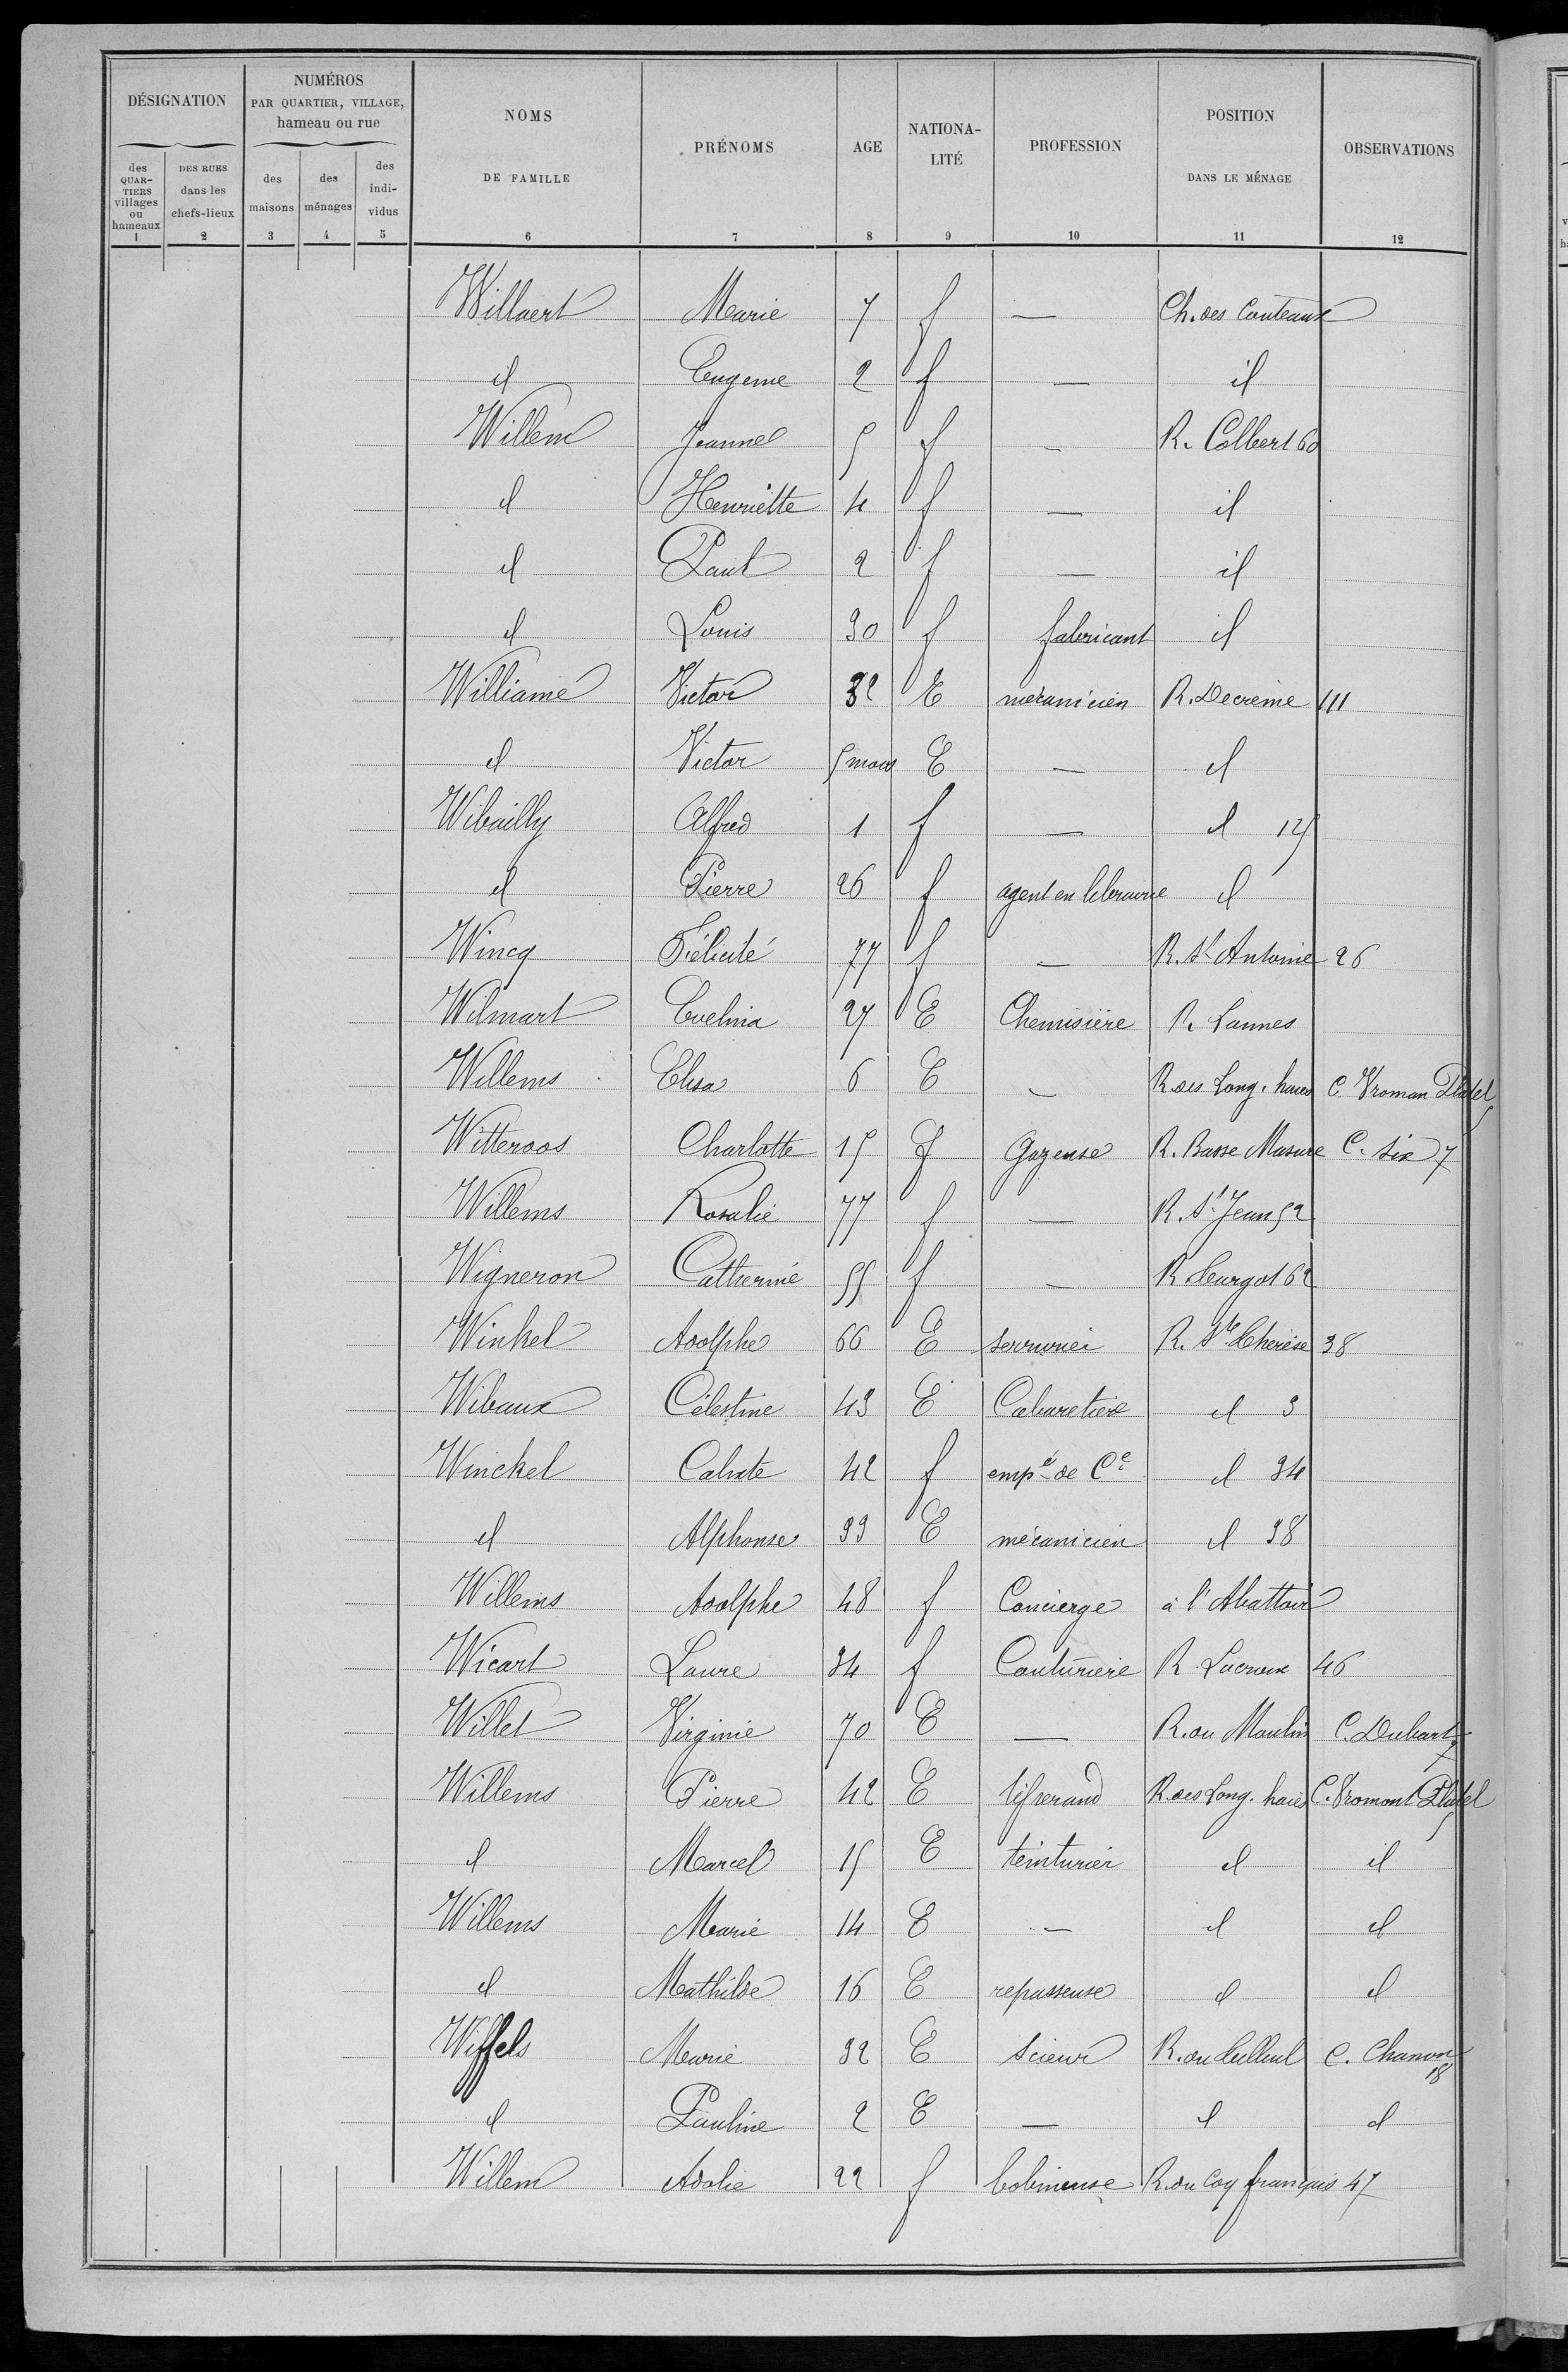 DÉSIGNATION
NUMÉROS
PAR QUARTIER, VILLAGE,
hameau ou rue
NOMS
DE FAMILLE
PRÉNOMS
AGE
NATIONA-
LITÉ
PROFESSION
POSITION
DANS LE MÉNAGE
OBSERVATIONS
des QUAR-TIERS villages ou hameaux
DES RUES dans les chefs-lieux
des maisons
des ménages
des indi-vidus
1 2 3 4 5 6 7 8 9 10 11 12
Willaert Marie 7 f — Ch. des Couteaux
id Eugenie 2 f — id
Willem Jeanne 5 f — R. Colbert 60
id Henriette 4 f — id
id Paul 2 f — id
id Louis 30 f fabricant id
Williame Victor 32 E mécanicien R. Decrême 111
id Victor 5 mois E — id
Wibailly Alfred 1 f — id 125
id Pierre 26 f agent en librairie id
Wincq Félicité 77 f — R. St Antoine 26
Wilmart Evelina 27 E Chemisière R. Lannes
Willems Elisa 6 E — R. des Long. haies C. Vroman Dhalel 5
Witteroos Charlotte 15 f Gazeuse R. Basse Masure C. Six 7
Willems Rosalie 77 f — R. St Jean 52
Wigneron Catherine 55 f — R. Turgot 62
Winkel Adolphe 66 E serrurier R. Ste Thérèse 38
Wibaux Célestine 43 E Cabaretière id 3
Winckel Calixte 42 f empé de Ce id 34
id Alphonse 33 E mécanicien id 38
Willems Adolphe 48 f Concierge à l'Abattoir
Wicart Laure 34 f Couturière R Lacroix 46
Willet Virginie 70 E — R. du Moulin C. Dubart 7
Willems Pierre 42 E tisserand R. des Long. haies C. Vromont Dhalel 5
id Marcel 15 E teinturier id id
Willems Marie 14 E — id id
id Mathilde 16 E repasseuse id id
Wiffels Marie 32 E scieur R. du Tilleul C. Chanon 18
id Pauline 2 E — id id
Willem Adolie 22 f bobineuse R. du Coq français 47